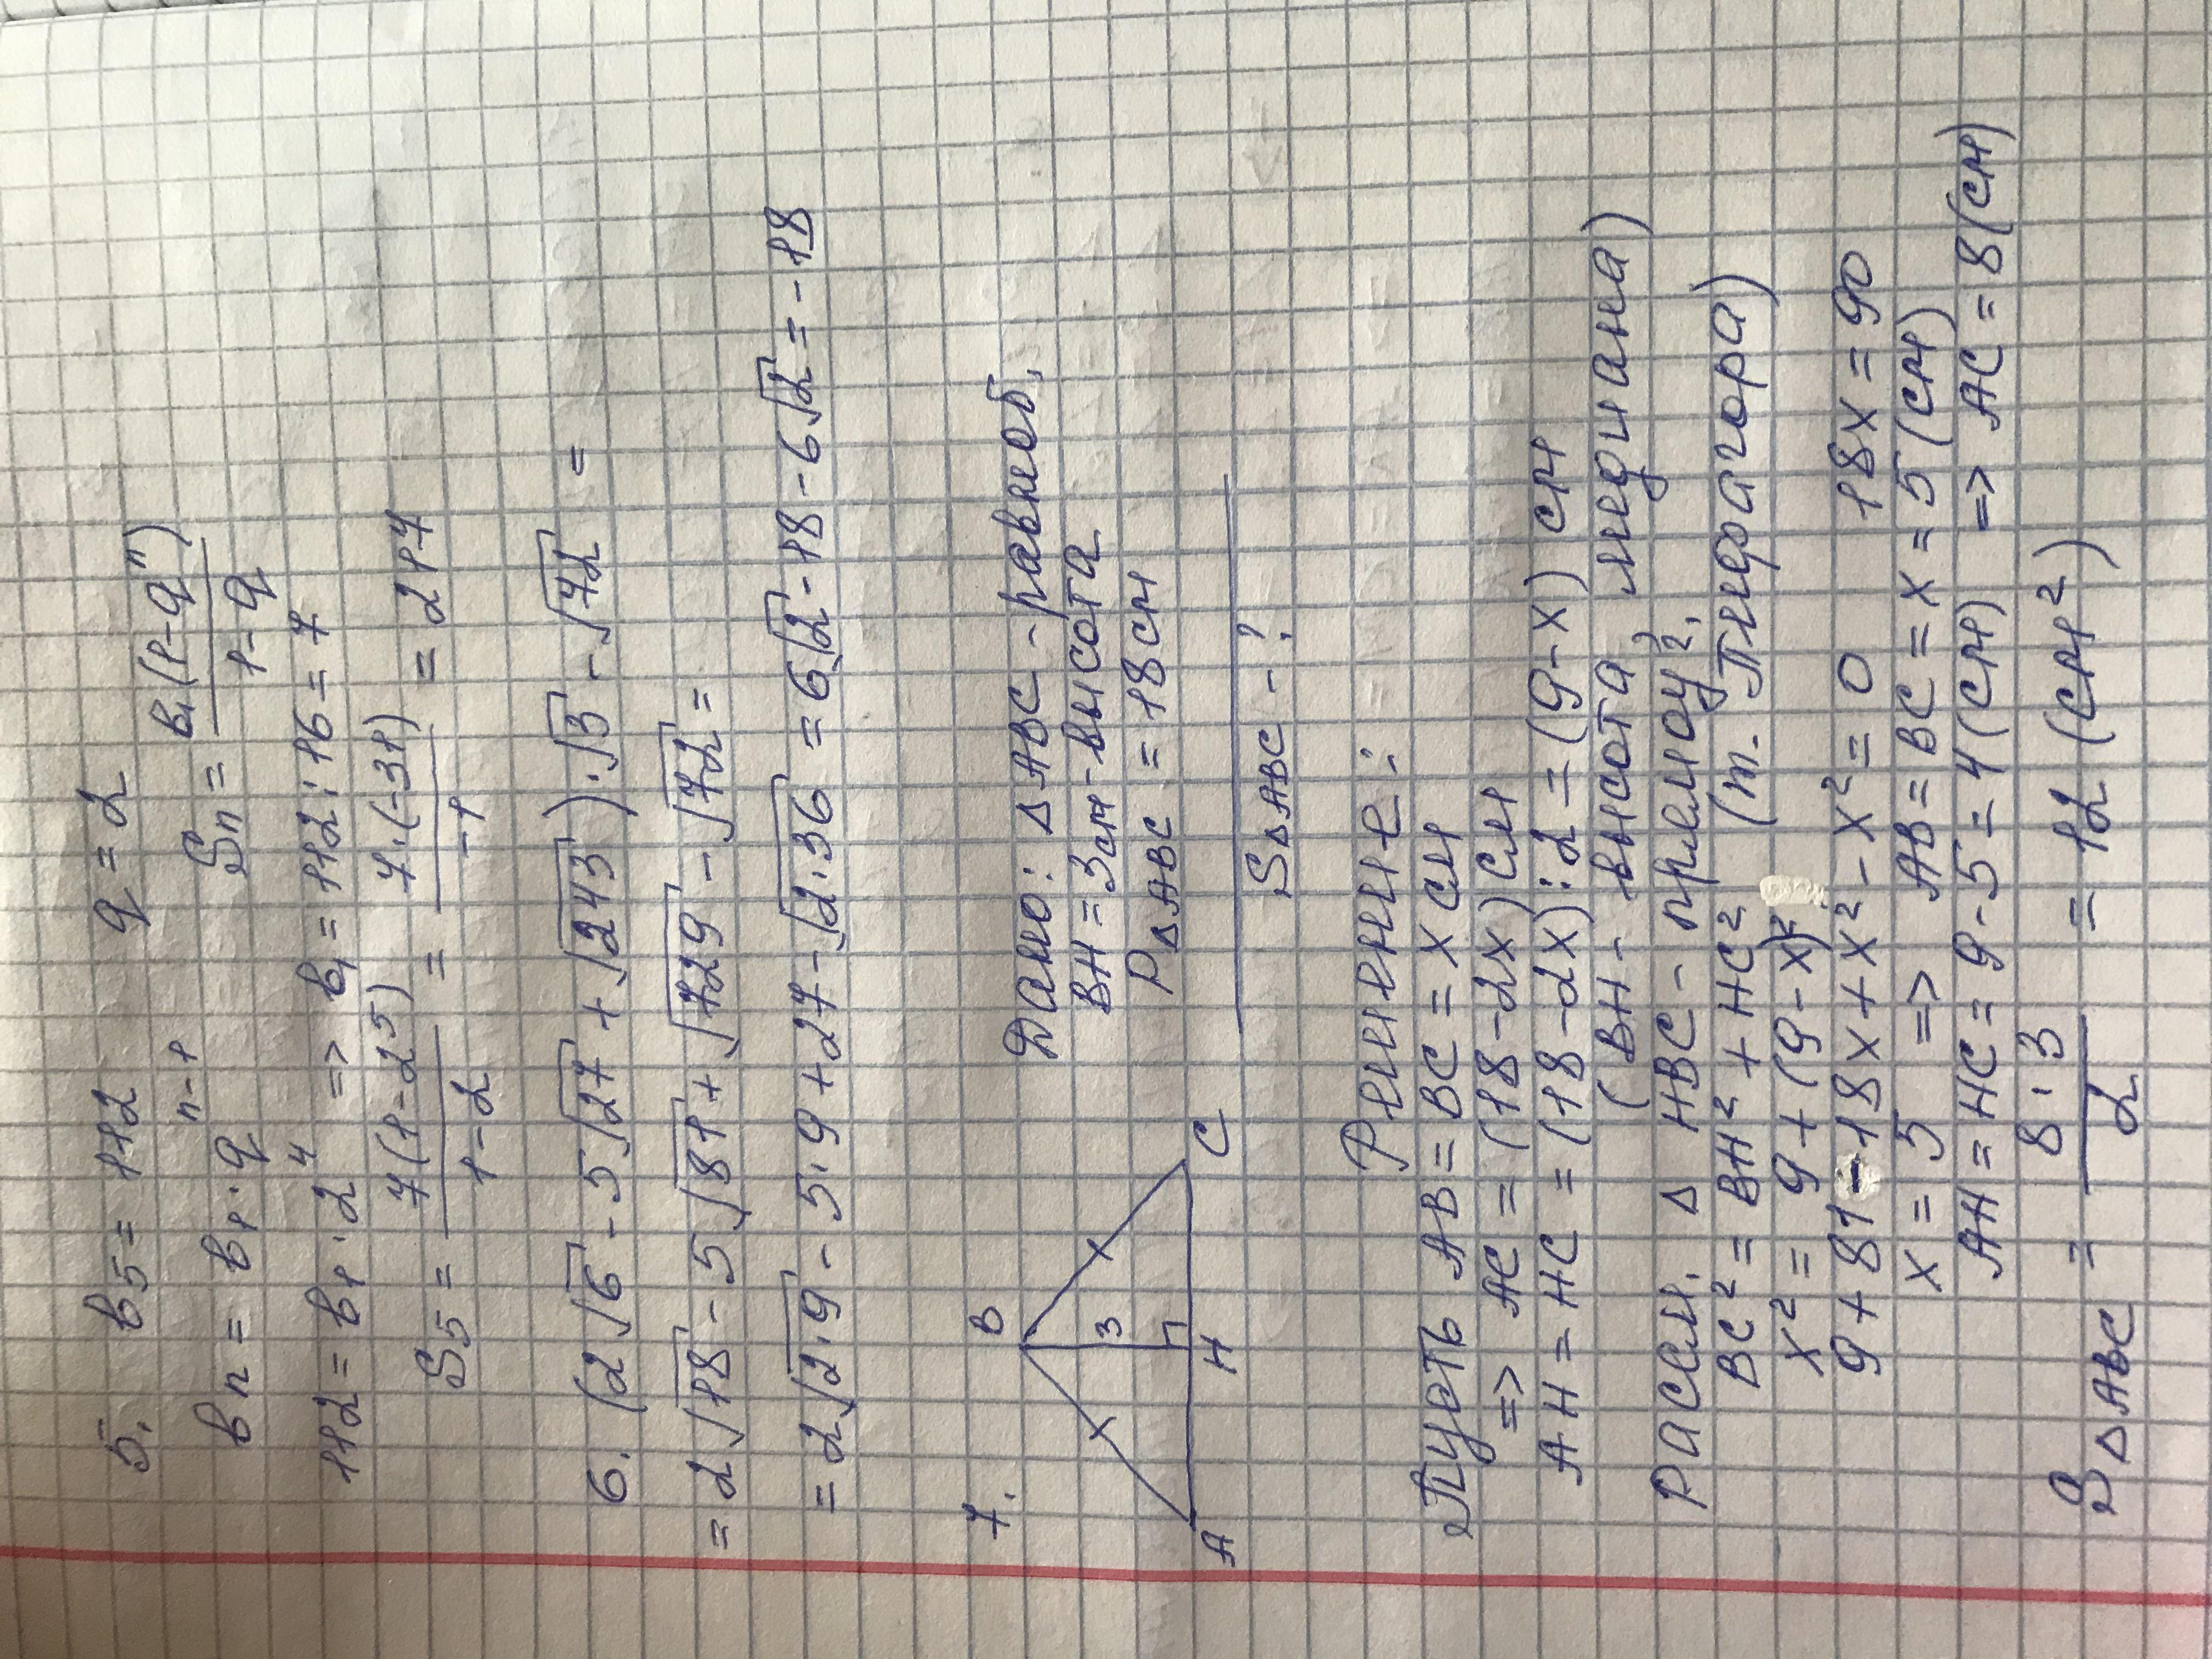 5. b₅ = 112 q = 2
bₙ = b₁ · qⁿ⁻¹ Sₙ = b₁(1-qⁿ) / 1-q
112 = b₁ · 2⁴ => b₁ = 112 : 16 = 7
S₅ = 7(1-2⁵) / 1-2 = 7·(-31) / -1 = 217
6. (2√6 - 5√27 + √243) · √3 - √72 =
= 2√18 - 5√81 + √729 - √72 =
= 2√2·9 - 5·9 + 27 - √2·36 = 6√2 - 18 - 6√2 = -18
7.
B
3
A H C
Дано: Δ ABC - равноб,
BH = 3см - высота
P Δ ABC = 18 см
S Δ ABC - ?
Решение:
Пусть AB = BC = x см
=> AC = (18-2x) см
AH = HC = (18-2x):2 = (9-x) см
(BH - высота, медиана)
Рассм. Δ HBC - прямоуг.
BC² = BH² + HC² (т. Пифагора)
x² = 9 + (9-x)²
9 + 81 - 18x + x² - x² = 0 18x = 90
x = 5 => AB = BC = x = 5 (см)
AH = HC = 9 - 5 = 4 (см) => AC = 8 (см)
S Δ ABC = 8·3 / 2 = 12 (см²)